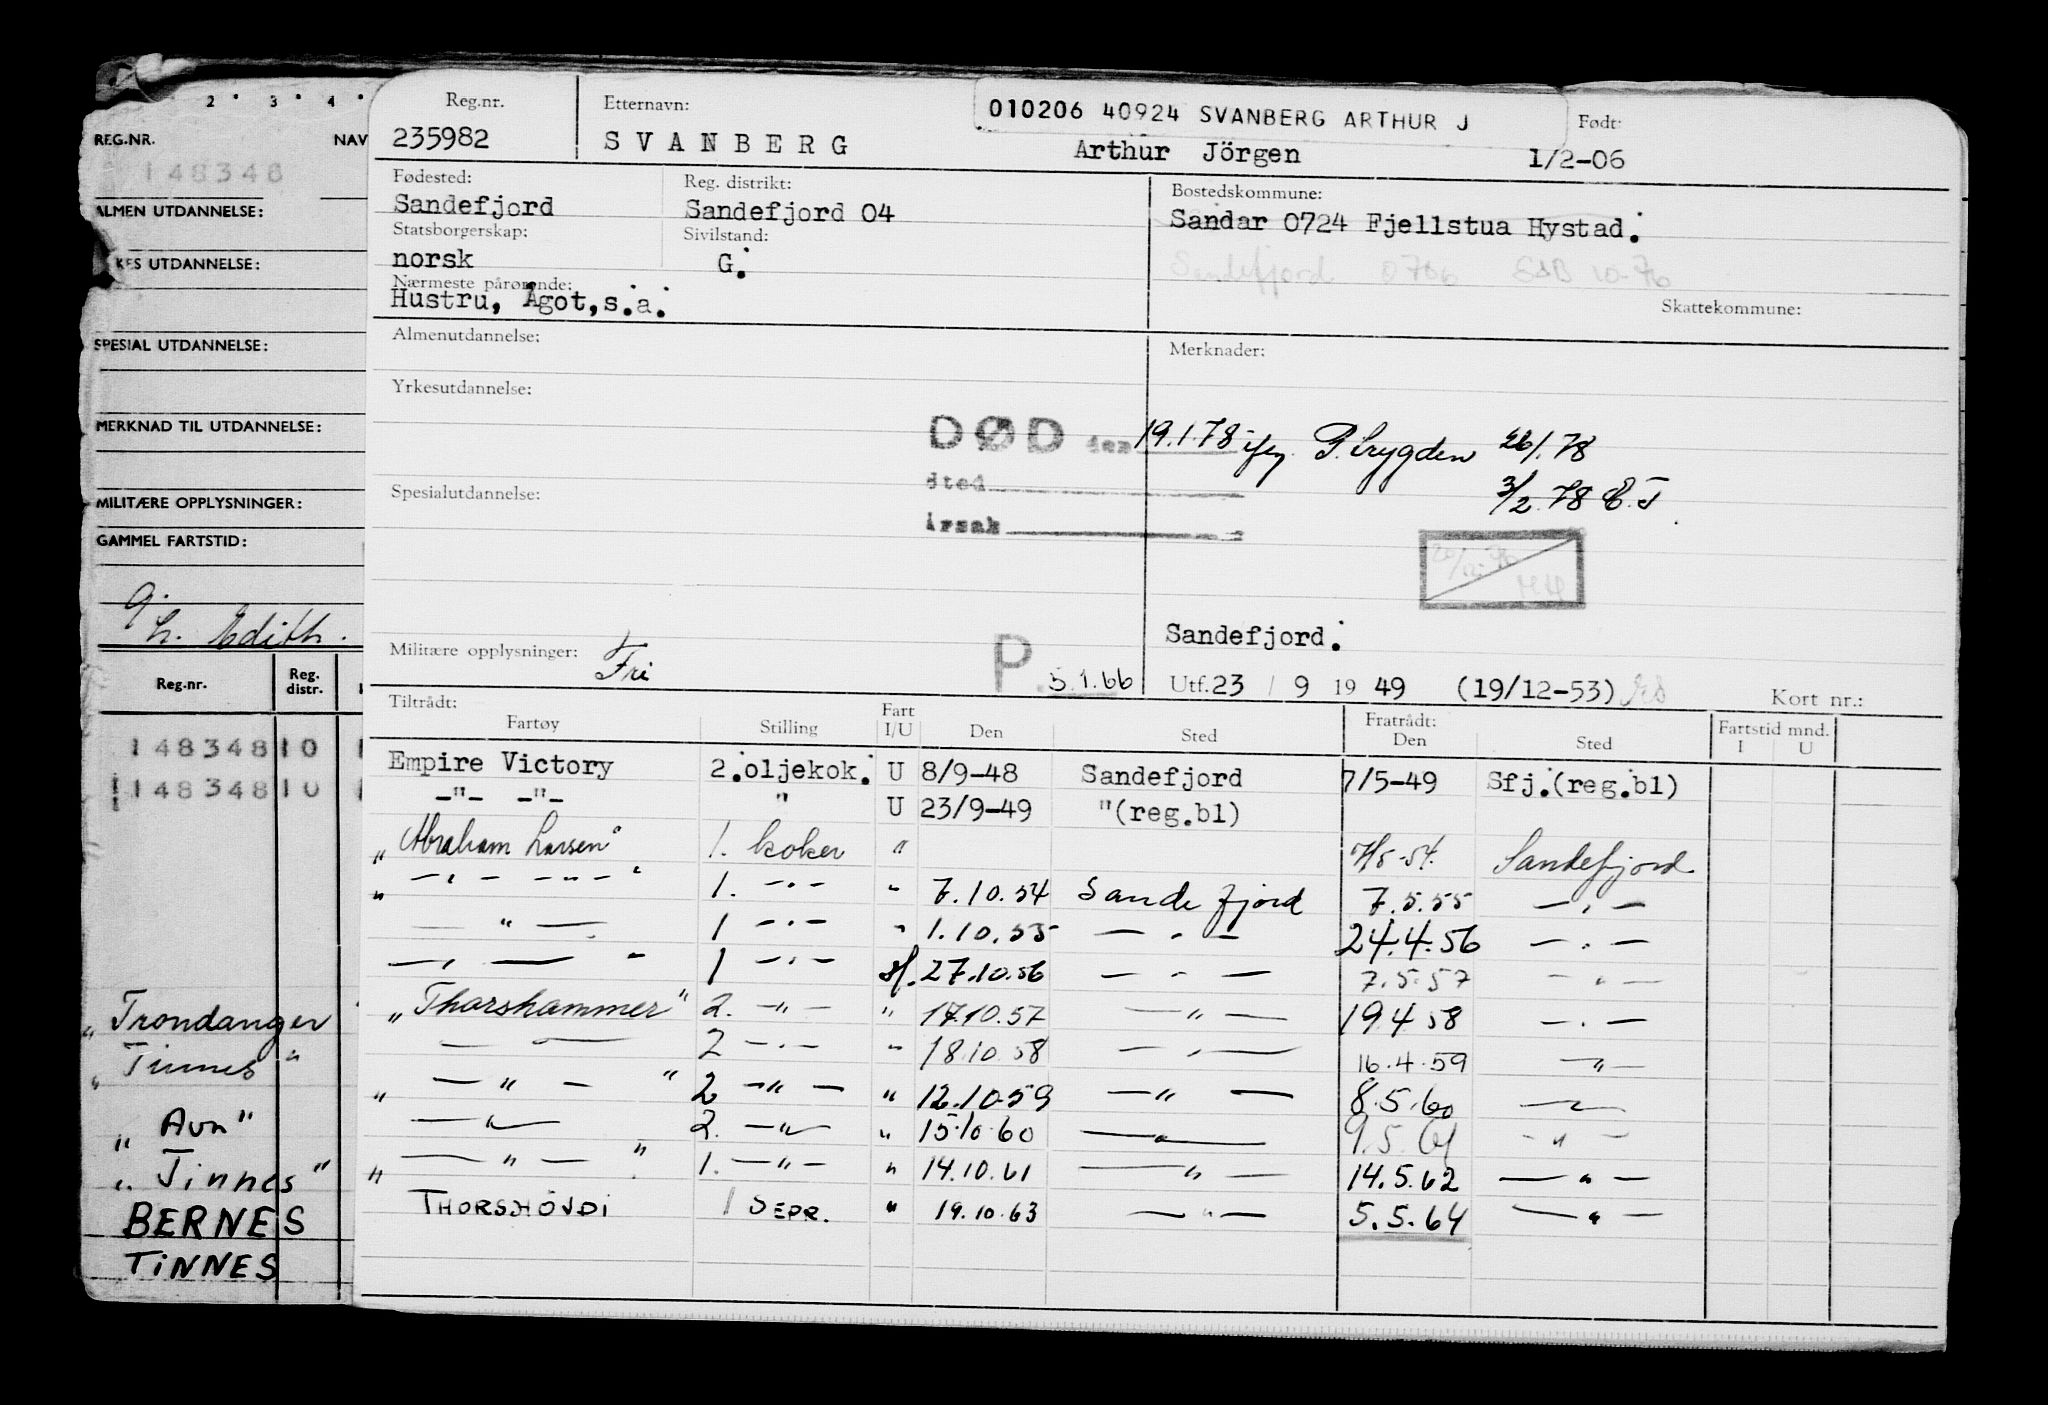 2 · 3 · 4 ·
REG.NR. NAV
148348
ALMEN UTDANNELSE:
KES UTDANNELSE:
SPESIAL UTDANNELSE:
MERKNAD TIL UTDANNELSE:
MILITÆRE OPPLYSNINGER:
GAMMEL FARTSTID:
g.
h. Edith.
Reg.nr. Reg. distr.
148348 10
148348 10
"Trondanger
"Tinnes"
"Avn"
"Tinnes"
BERNES
TINNES
Reg.nr. Etternavn: 010206 40924 SVANBERG ARTHUR J Født:
235982 SVANBERG Arthur Jörgen 1/2-06
Fødested: Reg. distrikt: Bostedskommune:
Sandefjord Sandefjord 04 Sandar 0724 Fjellstua Hystad.
Statsborgerskap: Sivilstand:
norsk G. Sandefjord 0706 10-76
Nærmeste pårørende: Skattekommune:
Hustru, Ågot,s.a.
Almenutdannelse: Merknader:
Yrkesutdannelse:
DØD den 19.1.78 26/1.78
sted
3/2.78 E.T.
Spesialutdannelse:
årsak
Sandefjord.
Militære opplysninger: Fri P 5.1.66 Utf. 23 / 9 19 49 (19/12-53) Kort nr.:
Tiltrådt: Fratrådt: Fartstid mnd.
Fartøy Stilling Fart I/U Den Sted Den Sted I U
Empire Victory 2.oljekok. U 8/9-48 Sandefjord 7/5-49 Sfj.(reg.bl)
-"- -"- " U 23/9-49 "(reg.bl)
"Abraham Larsen" 1. koker " 7/5-54. Sandefjord
" -"- -"- " 1. -"- " 7.10.54 Sandefjord 7.5.55 -"-
-"- 1 -"- " 1.10.55 -"- 24.4.56 -"-
-"- " 1 -"- 27.10.56 -"- 7.5.57 -"-
"Thorshammer" 2. -"- " 17.10.57 -"- 19.4.58 -"-
-"- 2 -"- " 18.10.58 -"- 16.4.59 -"-
" -"- " 2 -"- " 12.10.59 -"- 8.5.60 -"-
-"- 2. -"- " 15.10.60 -"- 9.5.61 -"-
" -"- " 1. -"- " 14.10.61 -"- 14.5.62 -"-
THORSHÖVDI 1 SEPR. " 19.10.63 -"- 5.5.64 -"-